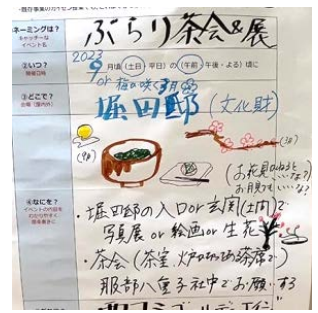 ネーミングは？
キャッチーな
イベント名
ぶらり茶会&展
②いつ？
開催日時
2023
9月頃(土日・平日)の(午前・午後・よる)頃に
or 梅の咲く3月
③どこで？
会場(屋内外)
堀田邸(文化財)
(9月)
(3月)
(お花見
お月見
④なにを？
イベントの内容を
わかりやすく
・堀田邸の入口or玄関(土間)で
写真展or絵画or生花
・茶会(茶室、炉のある茶席で)
服部八重子社中でお願いする